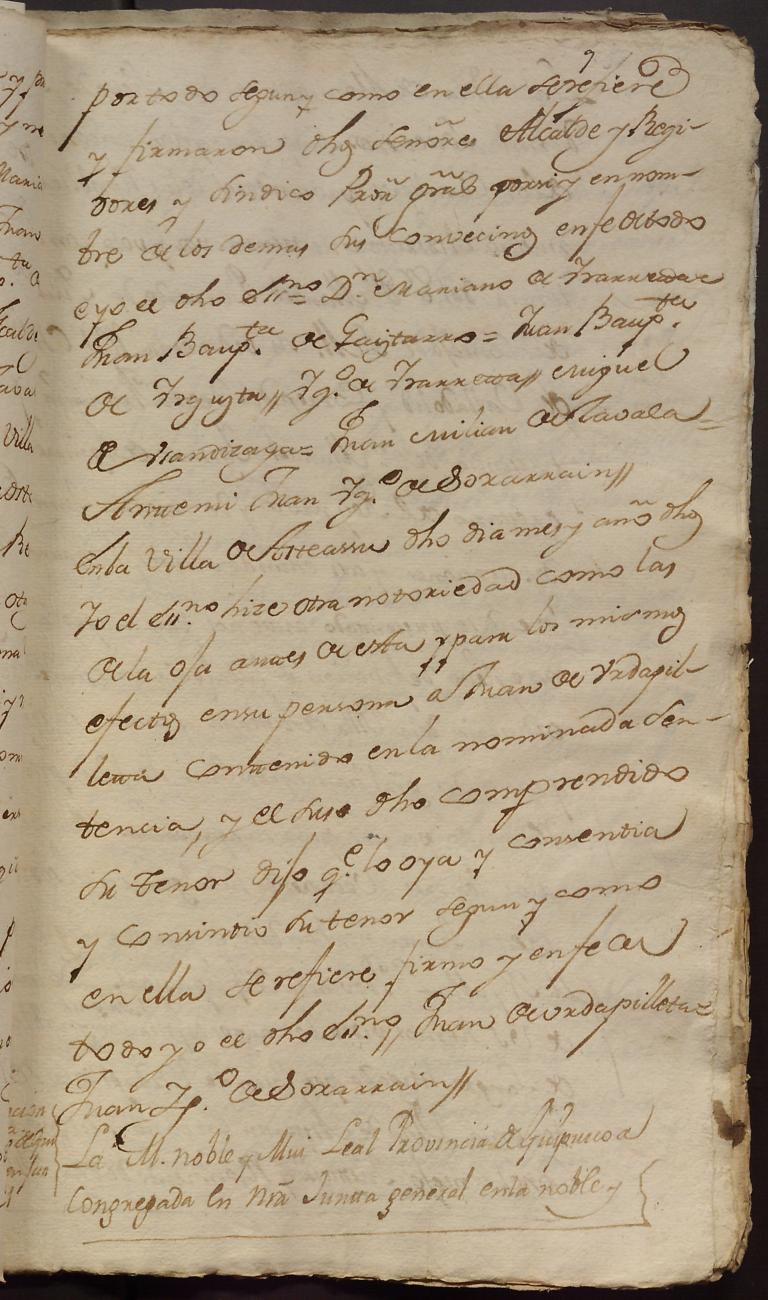 9
por todo segun y como en ella se refiere
y firmaron dhos señores Alcalde y Regi-
dores y sindico Pror gral por si y en nom-
bre de los demas sus convecinos en fe de todo
e yo el dho essno = Dn Mariano de Yrarreta =
Juan Baupta de Goytarro = Juan Baupta
de // Ygo de Yrarreta // Miguel
de Yrandizaga = Juan Milian de Zavala =
Ante mi Juan Ygo de Sorarrain //
En la Villa de Asteassu dho dia mes y año dhos
Yo el essno hize otra notoriedad como las
de la oja antes de esta y para los mismos
efectos en su persona a Juan de Urdapil-
leta contenido en la nominada sen-
tencia, y el suso dho comprendido
su tenor dijo qe lo oya y consentia
y consintio su tenor segun y como
en ella se refiere firmo y en fe de
todo yo el dho essno // Juan de urdapilleta =
Juan Ygo de Sorarrain //
La M. noble y Mui Leal Provincia de Guipuzcoa
Congregada en nra Juntta general en la noble y